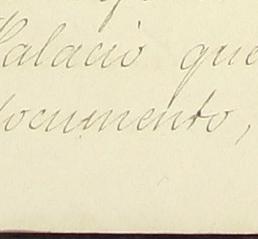 Palacio que
documento,